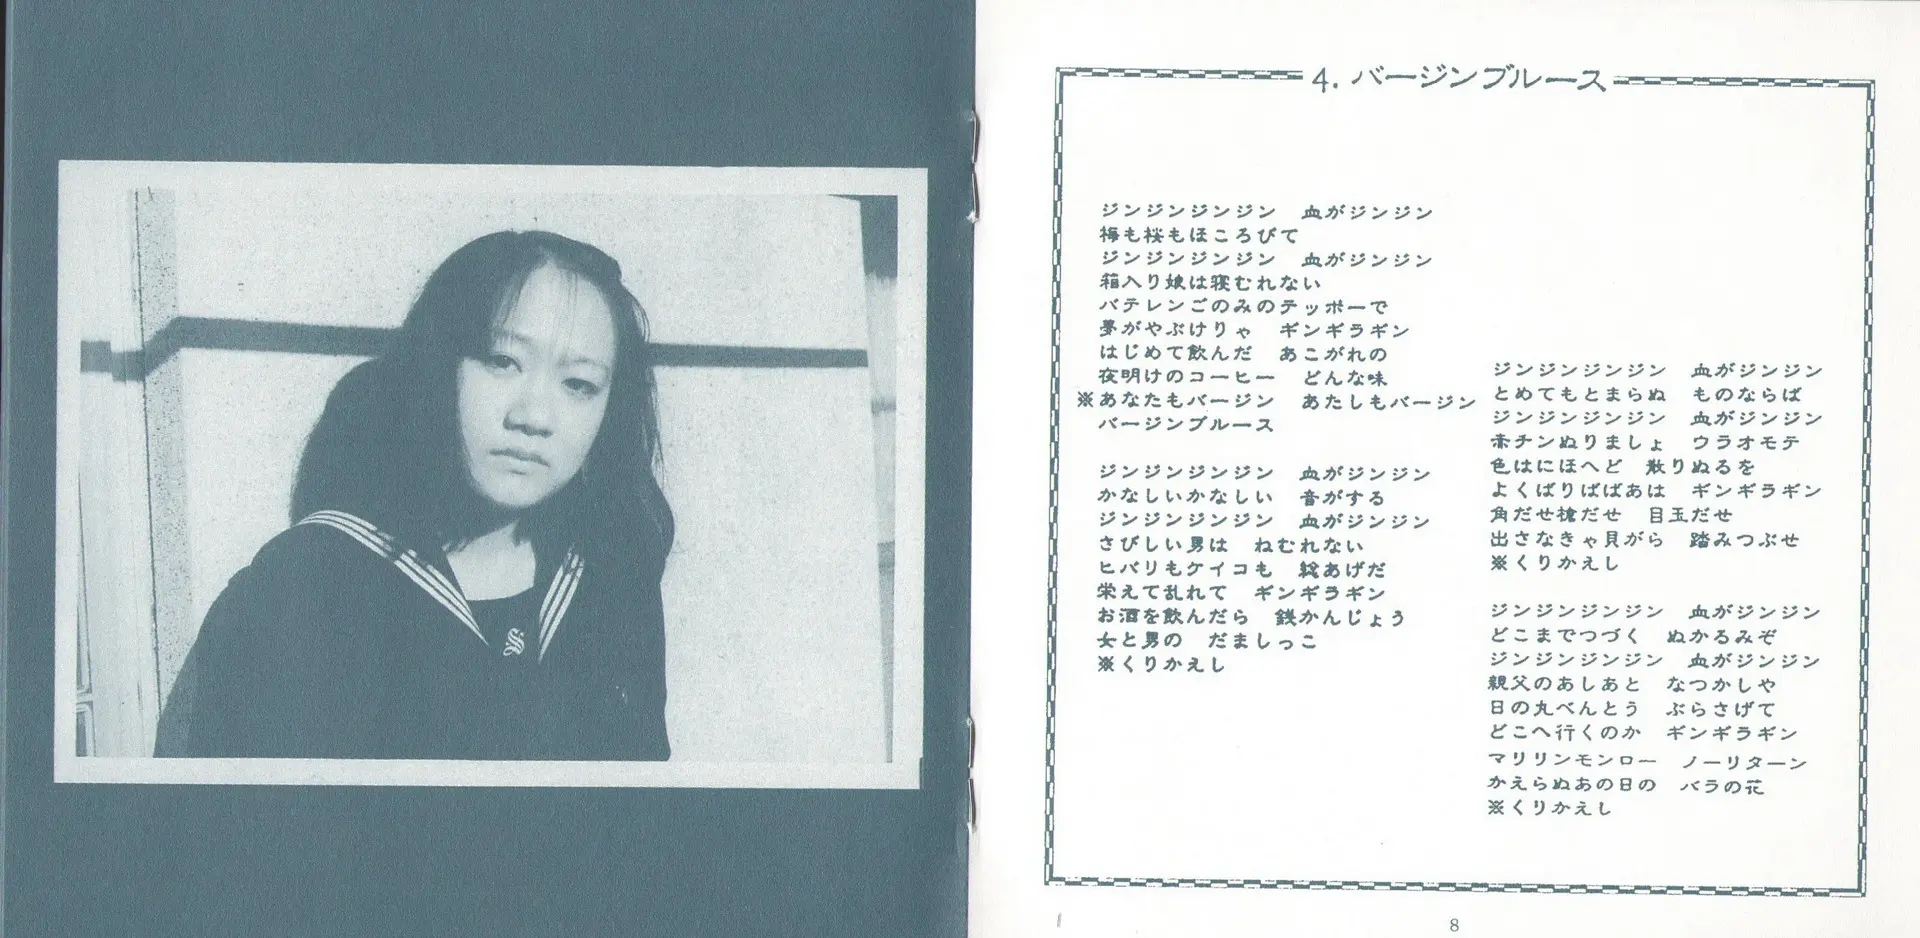 S
4. バージンブルース
ジンジンジンジン　血がジンジン
梅も桜もほころびて
ジンジンジンジン　血がジンジン
箱入り娘は寝むれない
バテレンごのみのテッポーで
夢がやぶけりゃ　ギンギラギン
はじめて飲んだ　あこがれの
夜明けのコーヒー　どんな味
※あなたもバージン　あたしもバージン
バージンブルース
ジンジンジンジン　血がジンジン
かなしいかなしい　音がする
ジンジンジンジン　血がジンジン
さびしい男は　ねむれない
ヒバリもケイコも　総あげだ
栄えて乱れて　ギンギラギン
お酒を飲んだら　銭かんじょう
女と男の　だましっこ
※くりかえし
ジンジンジンジン　血がジンジン
とめてもとまらぬ　ものならば
ジンジンジンジン　血がジンジン
赤チンぬりましょ　ウラオモテ
色はにほへど　散りぬるを
よくばりばばあは　ギンギラギン
角だせ槍だせ　目玉だせ
出さなきゃ貝がら　踏みつぶせ
※くりかえし
ジンジンジンジン　血がジンジン
どこまでつづく　ぬかるみぞ
ジンジンジンジン　血がジンジン
親父のあしあと　なつかしや
日の丸べんとう　ぶらさげて
どこへ行くのか　ギンギラギン
マリリンモンロー　ノーリターン
かえらぬあの日の　バラの花
※くりかえし
8